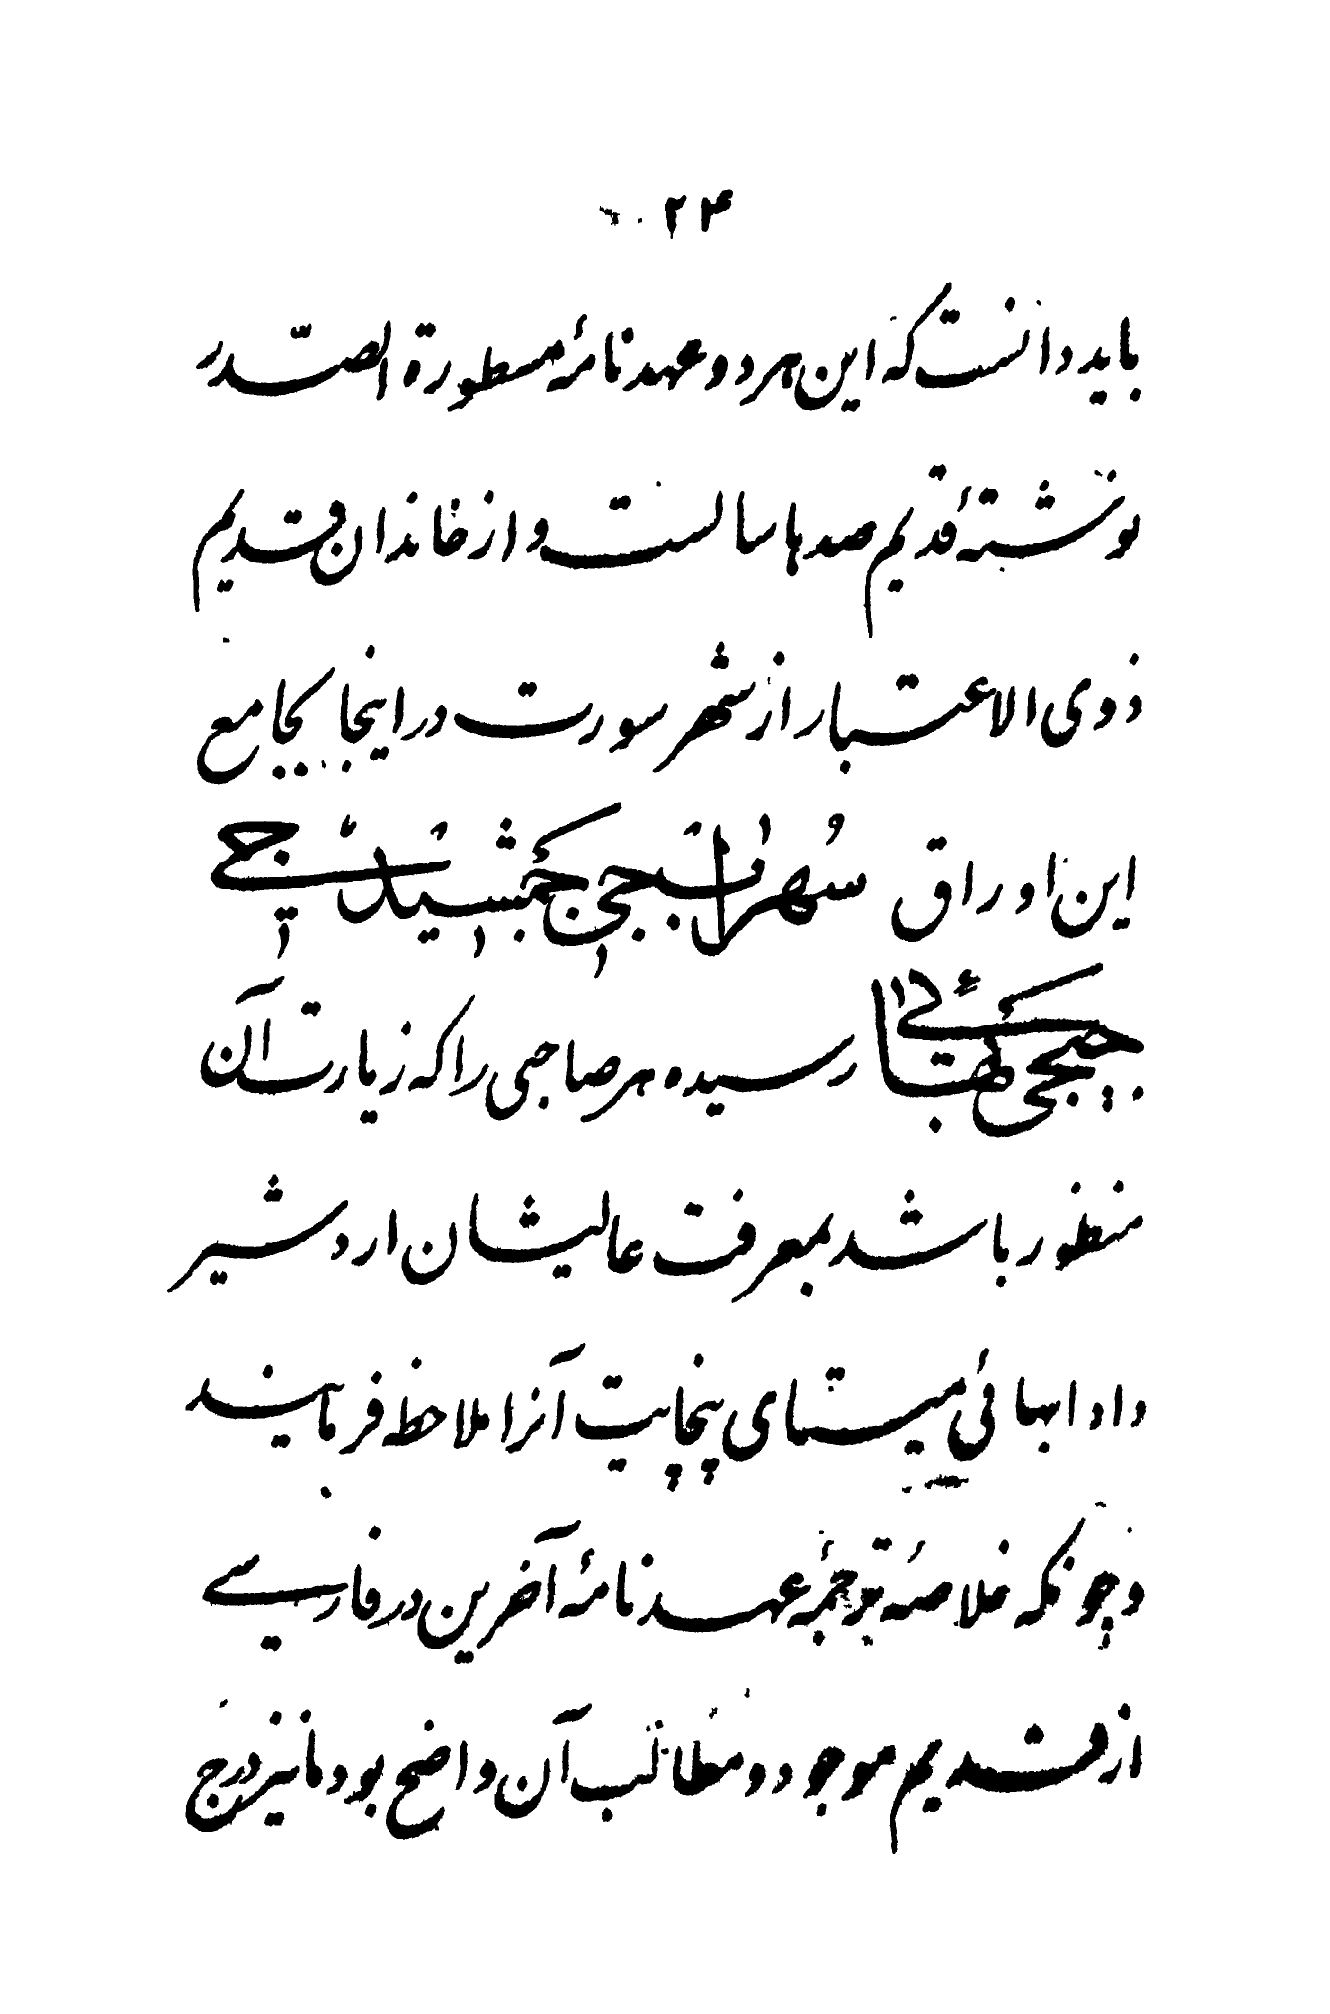 ۲۴
باید دانست که این هر دو عهد نامهٔ مسطورة الصّدر
نوشتهٔ قدیم صدها سالست و از خاندان قدیم
ذوی الاعتبار از شهر سورت در اینجا بجامع
این اوراق سُهرابجی جمشیدجی
جیجی‌بھائی رسیده هر صاحبی را که زیارت آن
منظور باشد بمعرفت عالیشان اردشیر
دادابهائی میستای پنچایت آنرا ملاحظه فرمایند
و چونکه خلاصهٔ ترجمهٔ عهد نامهٔ آخرین در فارسی
از قدیم موجود و مطالب آن واضح بود مانیز درج